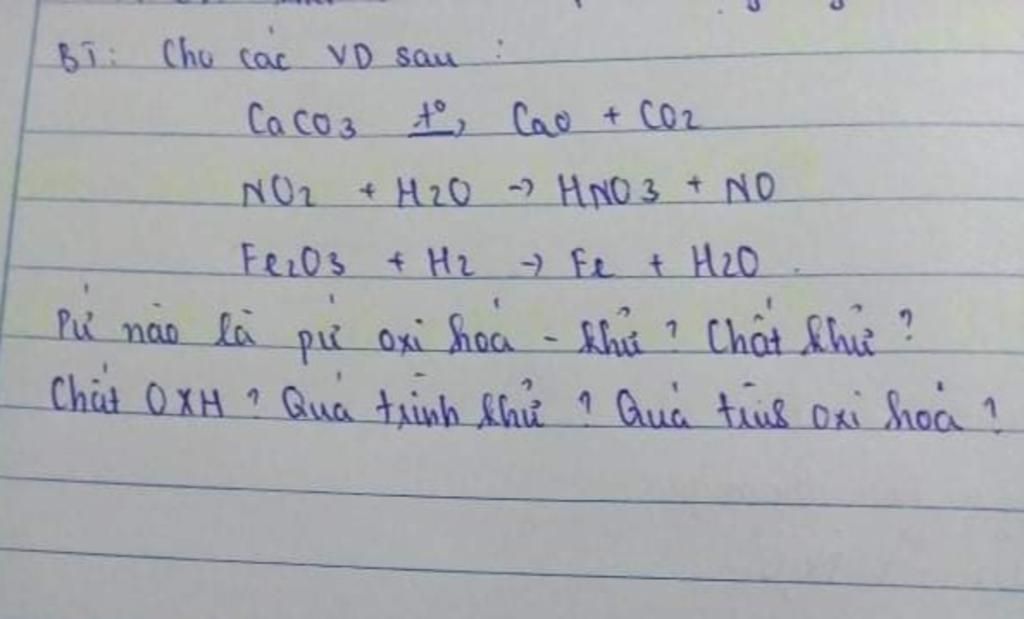 BT: Cho các VD sau :
CaCO3 t°→ CaO + CO2
NO2 + H2O → HNO3 + NO
Fe2O3 + H2 → Fe + H2O .
Pứ nào là pứ oxi hoá - khử ? Chất khử ?
Chất OXH ? Quá trình khử ? Quá trình oxi hoá ?